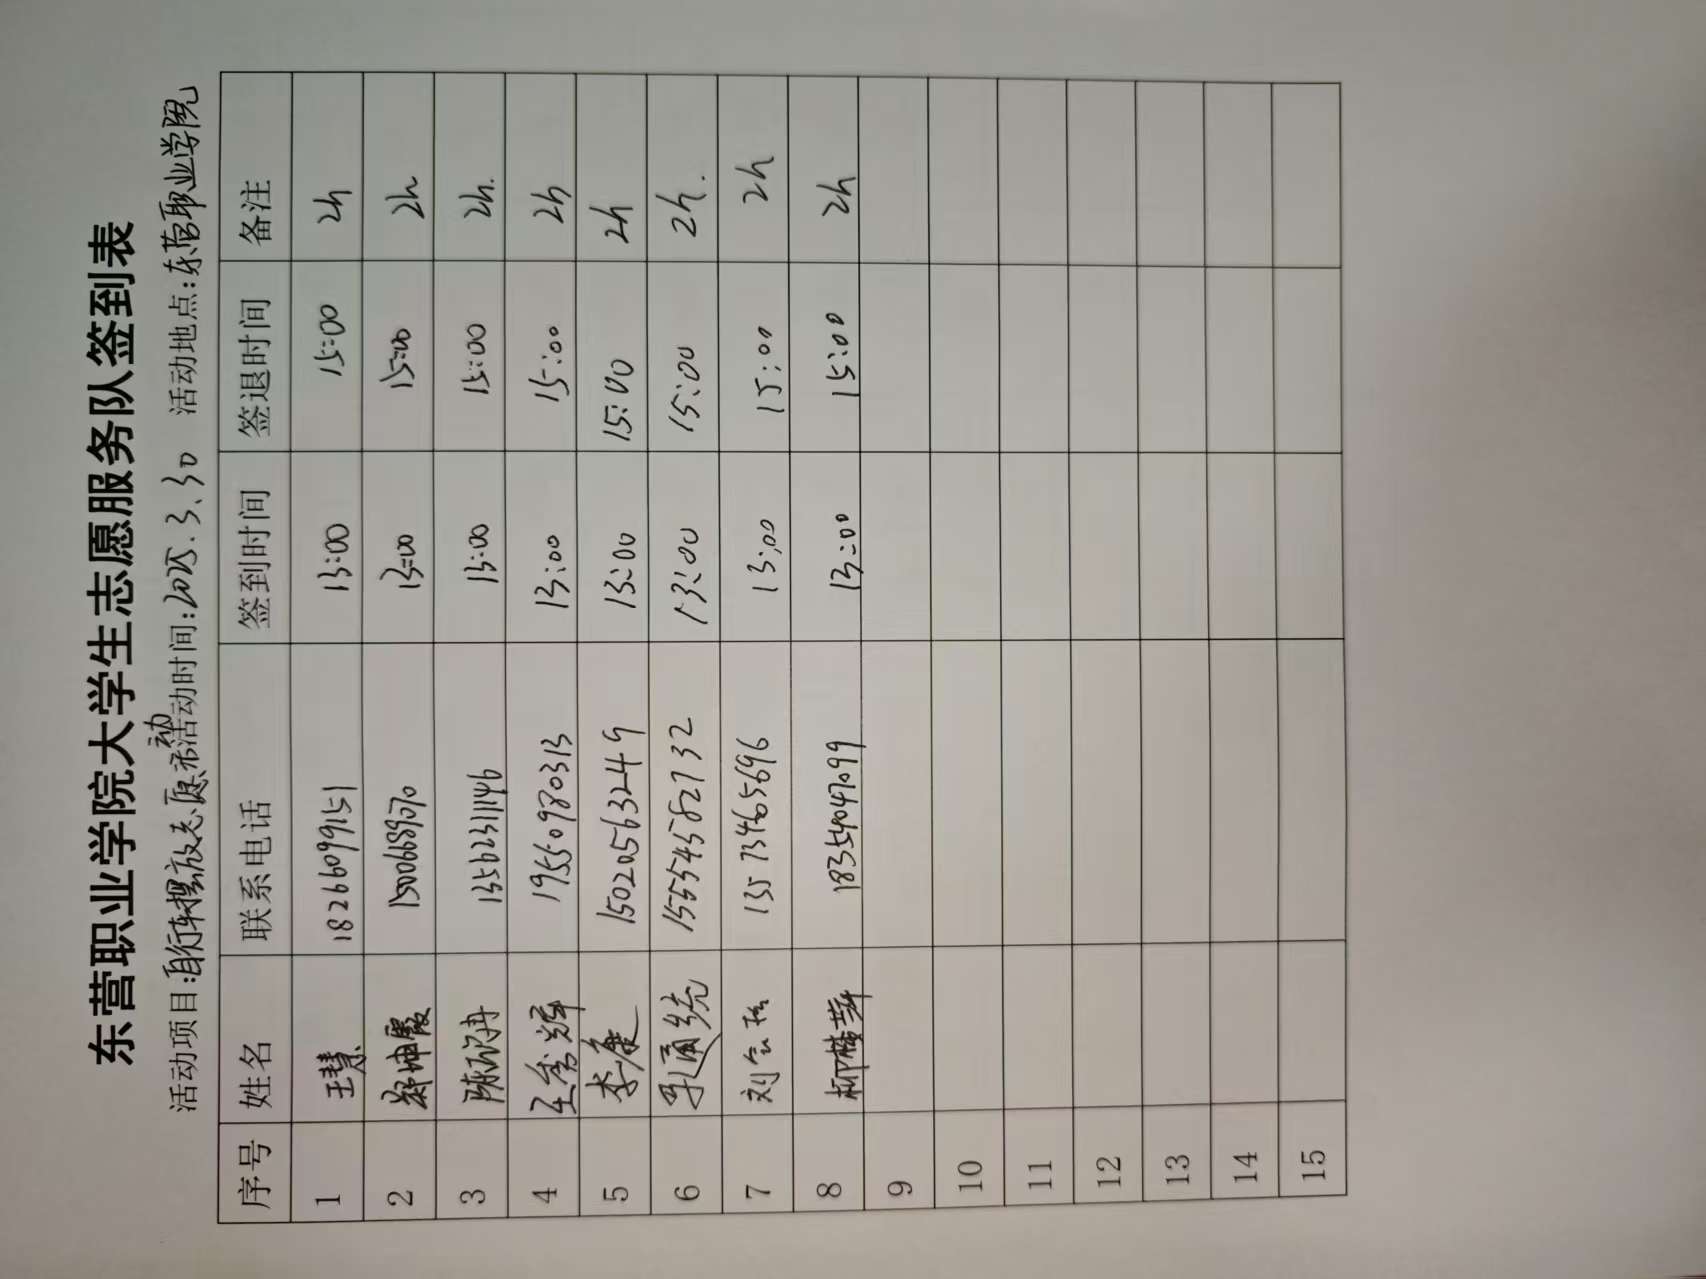 东营职业学院大学生志愿服务队签到表
活动项目:自行车摆放志愿活动 活动时间:2025.3.30 活动地点:东营职业学院
序号 姓名 联系电话 签到时间 签退时间 备注
1 王慧 18266099151 13:00 15:00 2h
2 郭坤霞 15006689570 13:00 15:00 2h
3 13562311146 13:00 15:00 2h.
4 王秀辉 19550980313 13:00 15:00 2h
5 李康 15020563249 13:00 15:00 2h
6 通统 15554582732 13:00 15:00 2h.
7 刘会 13573465696 13:00 15:00 2h
8 柳 18354047099 13:00 15:00 2h
9
10
11
12
13
14
15